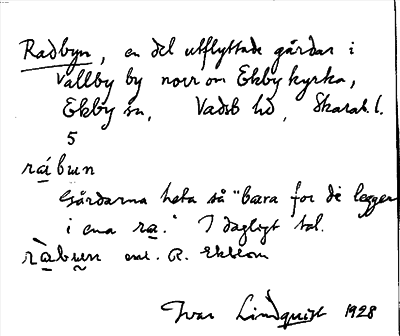 Radbyn, en del utflyttade gårdar i
Vallby by norr om Ekby kyrka,
Ekby sn, Vadsb hd, Skarab. l.
5
rábun
Gårdarna heta så "bara for de legger
i ena ra." I dagligt tal.
ràbun enl. R. Ekblom
Ivar Lindquist 1928